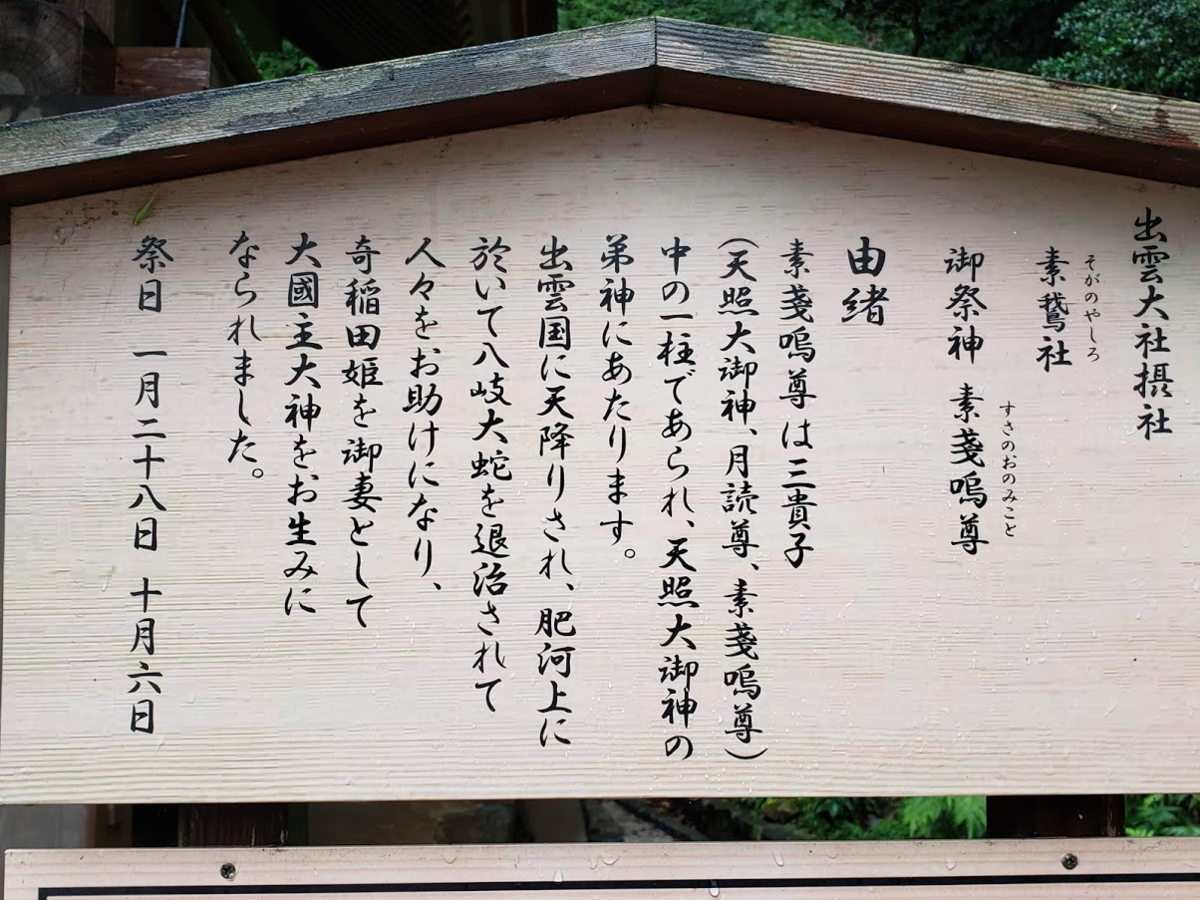 出雲大社摂社
そがのやしろ
素鵞社
すさのおのみこと
御祭神 素戔嗚尊
由緒
素戔嗚尊は三貴子
(天照大御神、月読尊、素戔嗚尊)
中の一柱であられ、天照大御神の
弟神にあたります。
出雲国に天降りされ、肥河上に
於いて八岐大蛇を退治されて
人々をお助けになり、
奇稲田姫を御妻として
大國主大神をお生みに
なられました。
祭日 一月二十八日 十月六日